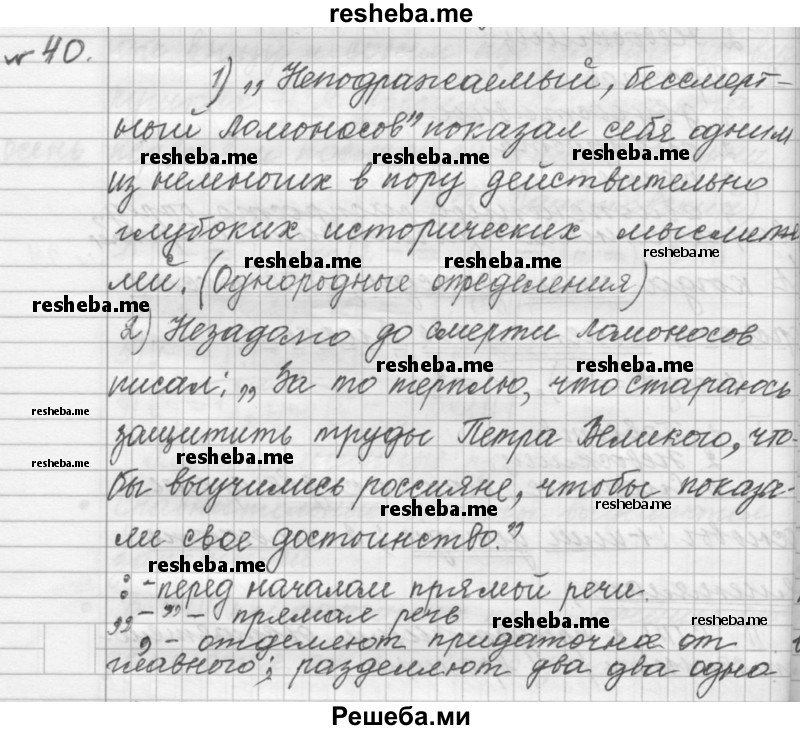 resheba.me
№ 40.
1) „Неподражаемый, бессмерт-
ный Ломоносов" показал себя одним
resheba.me resheba.me resheba.me
из немногих в пору действительно
глубоких исторических мыслите
resheba.me
лей. (Однородные определения)
resheba.me resheba.me
resheba.me
2) Незадолго до смерти Ломоносов
resheba.me resheba.me
писал: „За то терплю, что стараюсь
resheba.me
защитить труды Петра Великого, что-
resheba.me resheba.me
бы выучились россияне, чтобы показа-
resheba.me resheba.me
ли свое достоинство."
resheba.me
: - перед началом прямой речи.
„ - " - прямая речь
resheba.me resheba.me
, - отделяют придаточное от
главного; разделяют два два одно
Решеба.ми